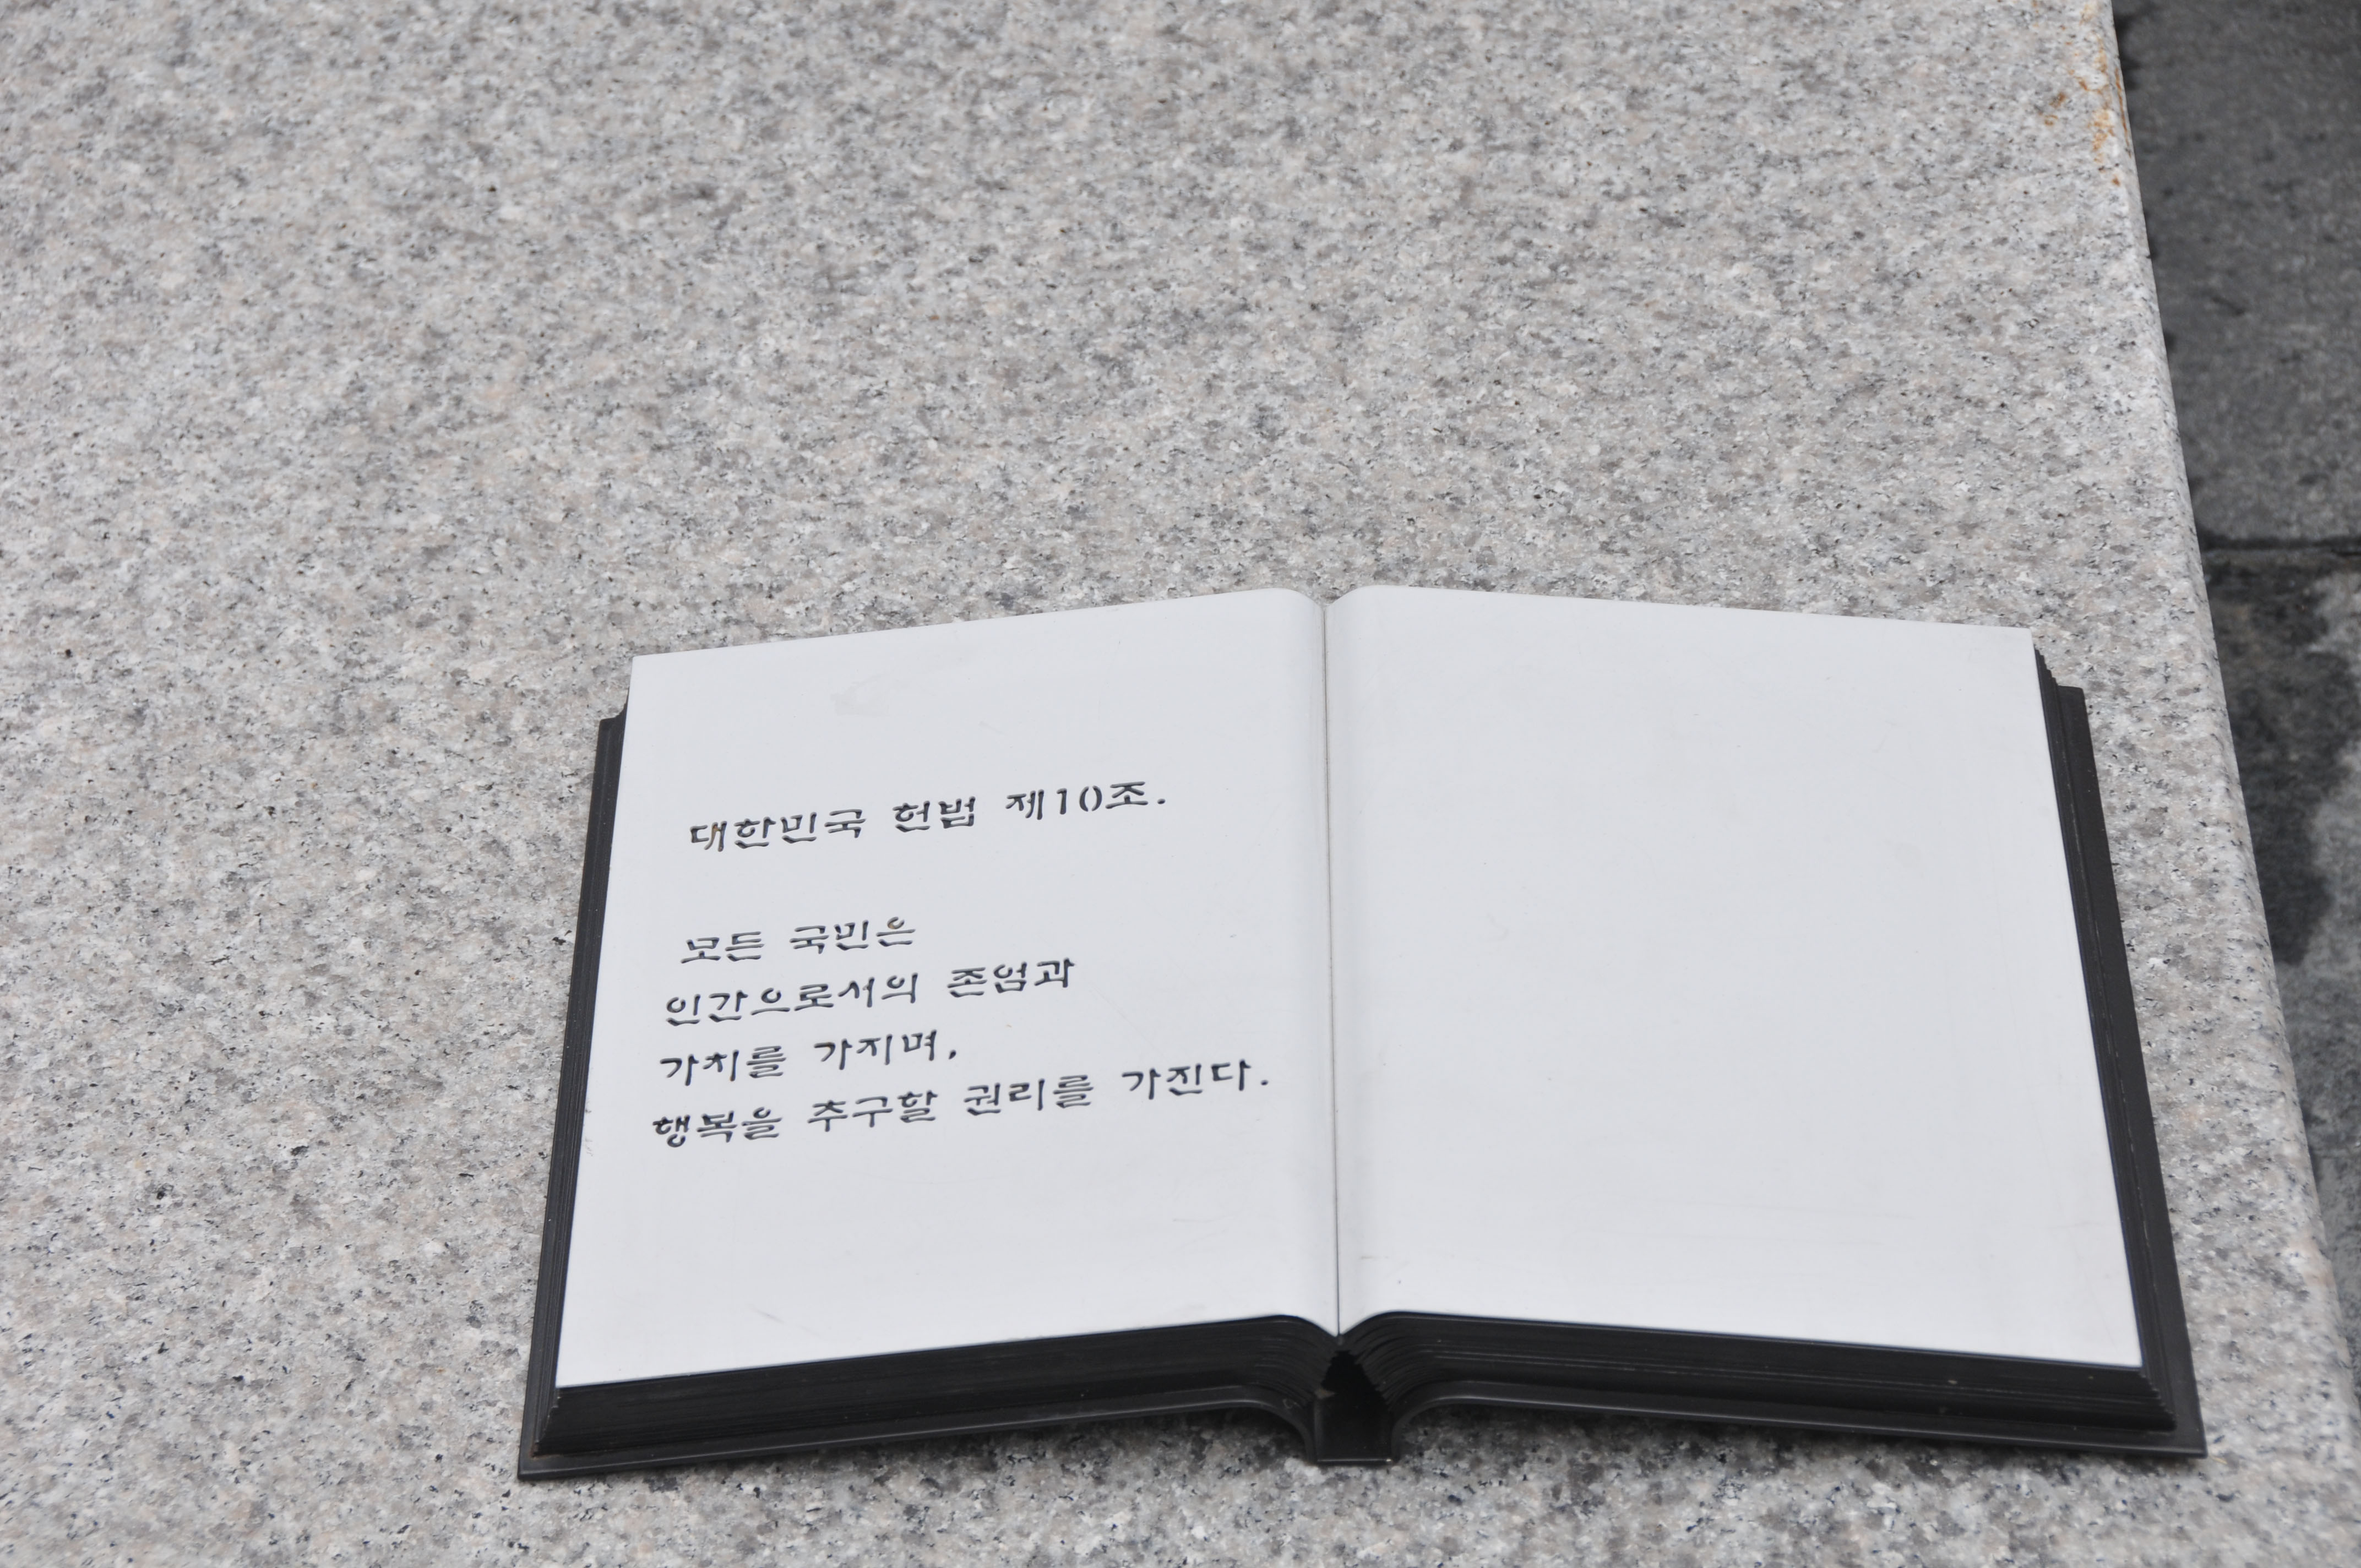 대한민국 헌법 제10조.
모든 국민은
인간으로서의 존엄과
가치를 가지며,
행복을 추구할 권리를 가진다.